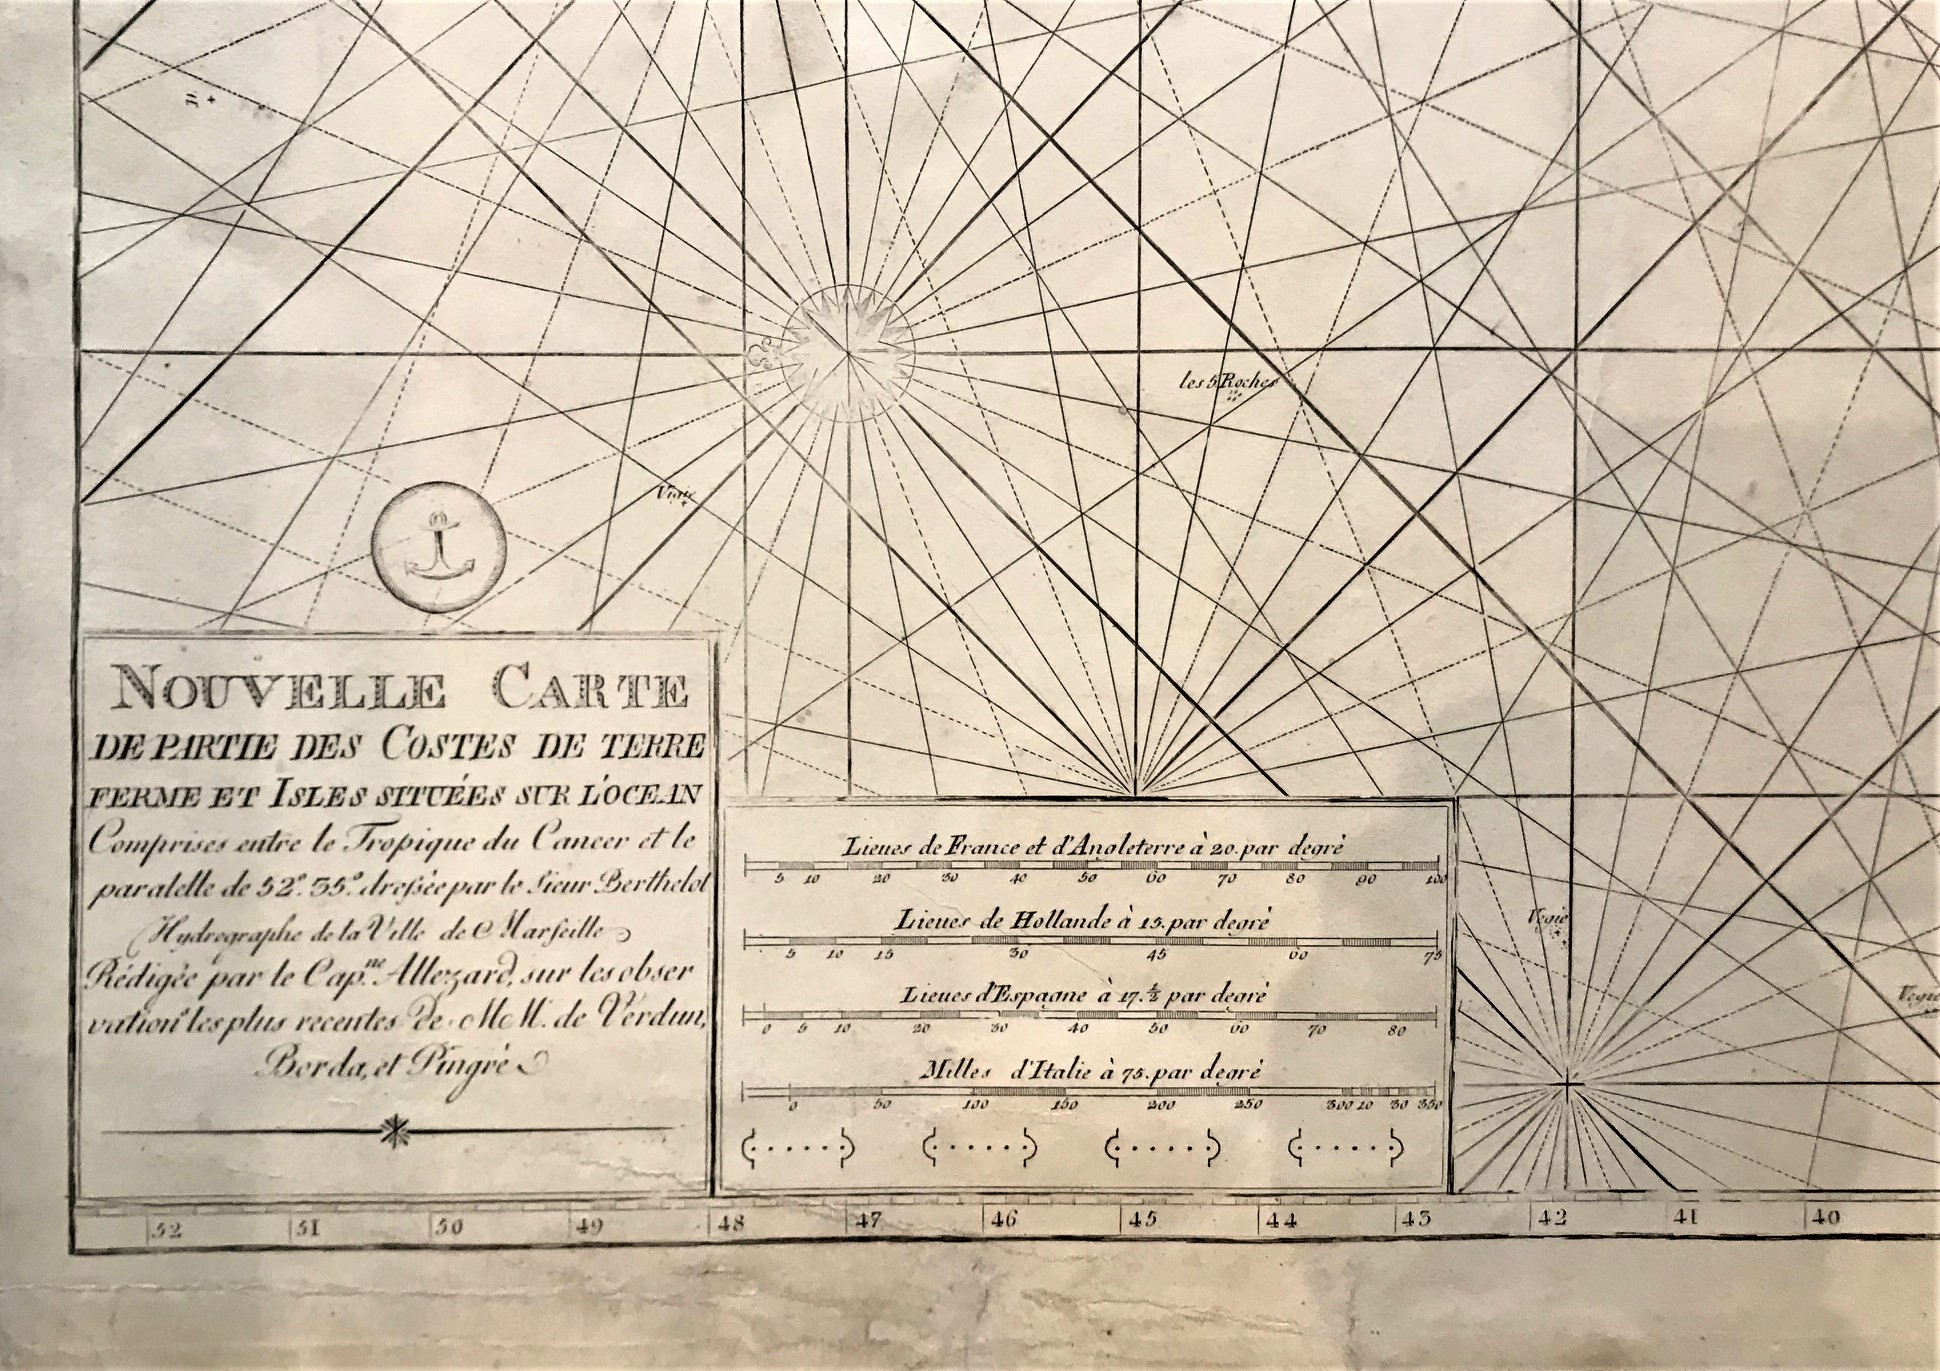 les 5 Roches
NOUVELLE CARTE
DE PARTIE DES COSTES DE TERRE
FERME ET ISLES SITUÉES SUR L'OCEAN
Comprises entre le Tropique du Cancer et le
paralelle de 52.° 35.° dreſsée par le Sieur Berthelot
Hydrographe de la Ville de Marſeille
Rédigée par le Cap.ne Allezard, sur les obser
vation.s les plus recentes De MM. de Verdun,
Borda, et Pingré
Lieues de France et d'Angleterre à 20. par degré
5 10 20 30 40 50 60 70 80 90 100
Lieues de Hollande à 15. par degré
5 10 15 30 45 60 75
Lieues d'Espagne à 17. ½ par degré
0 5 10 20 30 40 50 60 70 80
Milles d'Italie à 75. par degré
0 50 100 150 200 250 300 10 30 350
Vegie
Vegie
52 51 50 49 48 47 46 45 44 43 42 41 40